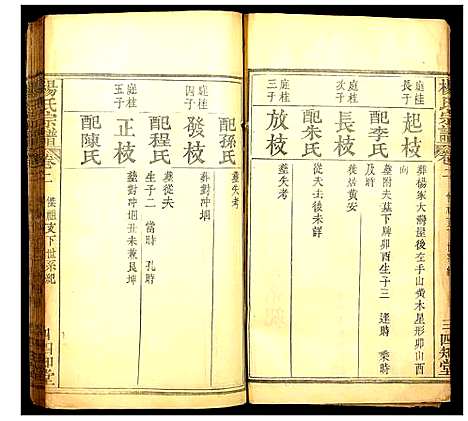 楊氏宗譜 卷二
三 四知堂
庭桂長子
起枝
葬楊家大灣屋後左手山黃木星形卯山酉向
配李氏
墓附夫墓下牌卯酉生子三 逢時 乘時 及時
庭桂次子
長枝
徙居黃安
配朱氏
從夫去後未詳
庭桂三子
放枝
墓失考
庭桂四子
發枝
葬對冲垌
配孫氏
墓失考
庭桂五子
正枝
墓對冲垌丑未兼艮坤
配程氏
墓從夫
生子二 當時 孔時
配陳氏
楊氏宗譜 卷二
支下世系紀
四知堂